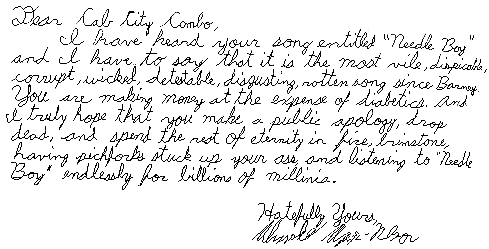 Dear Cab City Combo,
I have heard your song entitled "Needle Boy"
and I have to say that it is the most vile, dispicable,
corrupt, wicked, detestable, disgusting, rotten song since Barney.
You are making money at the expense of diabetics. And
I truly hope that you make a public apology, drop
dead, and spend the rest of eternity in fire, brimstone,
having pichforks stuck up your ass, and listening to "Needle
Boy" endlessly for billions of millinia.
Hatefully Yours,